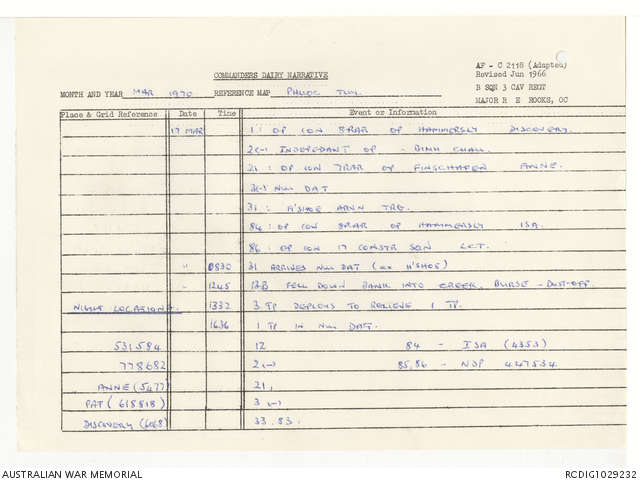 AF - C 2118 (Adapted)
Revised Jun 1966
COMMANDERS DAIRY NARRATIVE
B SQN 3 CAV REGT
MONTH AND YEAR MAR 1970 REFERENCE MAP PHUOC TUY.
MAJOR R E ROOKS, OC
Place & Grid Reference Date Time Event or Information
17 MAR 1: OP CON 8RAR OP HAMMERSLY DISCOVERY.
2(-) INDEPENDANT OP - BINH CHAU.
21: OP CON 7RAR OP FINSCHAFEN ANNE.
NUI DAT
31: H'SHOE ARVN TRG.
84: OP CON 8RAR OP HAMMERSLY ISA.
86: OP CON 17 CONSTR SQN L.C.T.
" 0830 31 ARRIVES NUI DAT (ex H'SHOE)
" 1245 13B FELL DOWN BANK INTO CREEK. BURSE - DUST-OFF.
NIGHT LOCATIONS. 1332 3 TP DEPLOYS TO RELIEVE 1 TP.
1636 1 TP IN NUI DAT.
531584 12 84 - ISA (4353)
778682 2(-) 85,86 - NDP 447534
ANNE (5477) 21,
PAT (618818) 3 (-)
DISCOVERY (6068) 33.83.
AUSTRALIAN WAR MEMORIAL RCDIG1029232